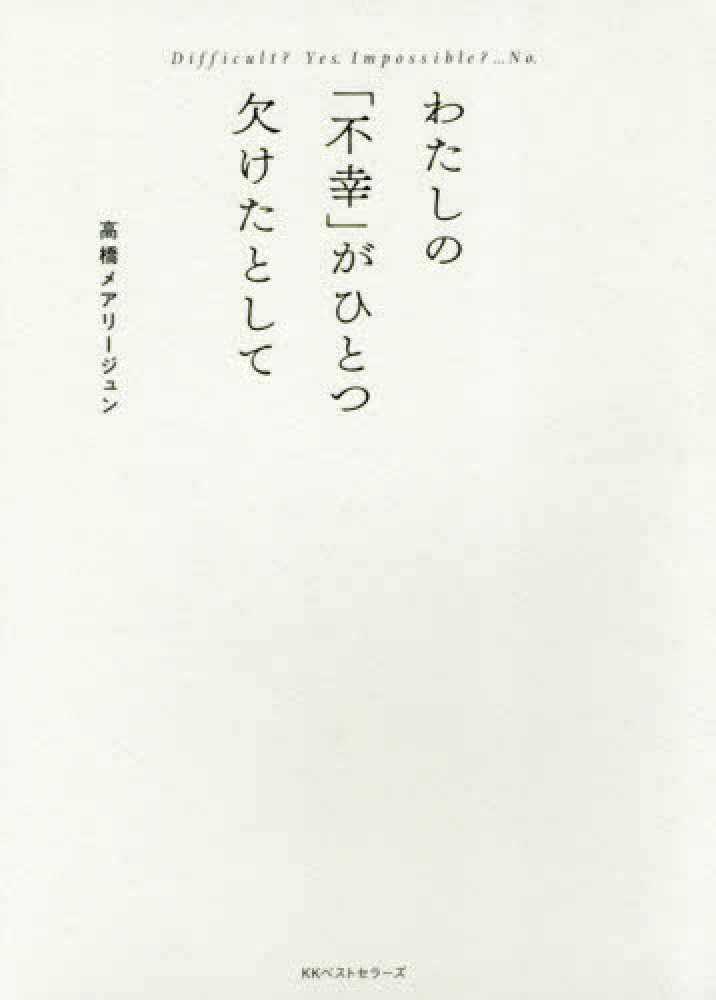 Difficult? Yes. Impossible? ...No.
わたしの
「不幸」がひとつ
欠けたとして
高橋メアリージュン
KKベストセラーズ